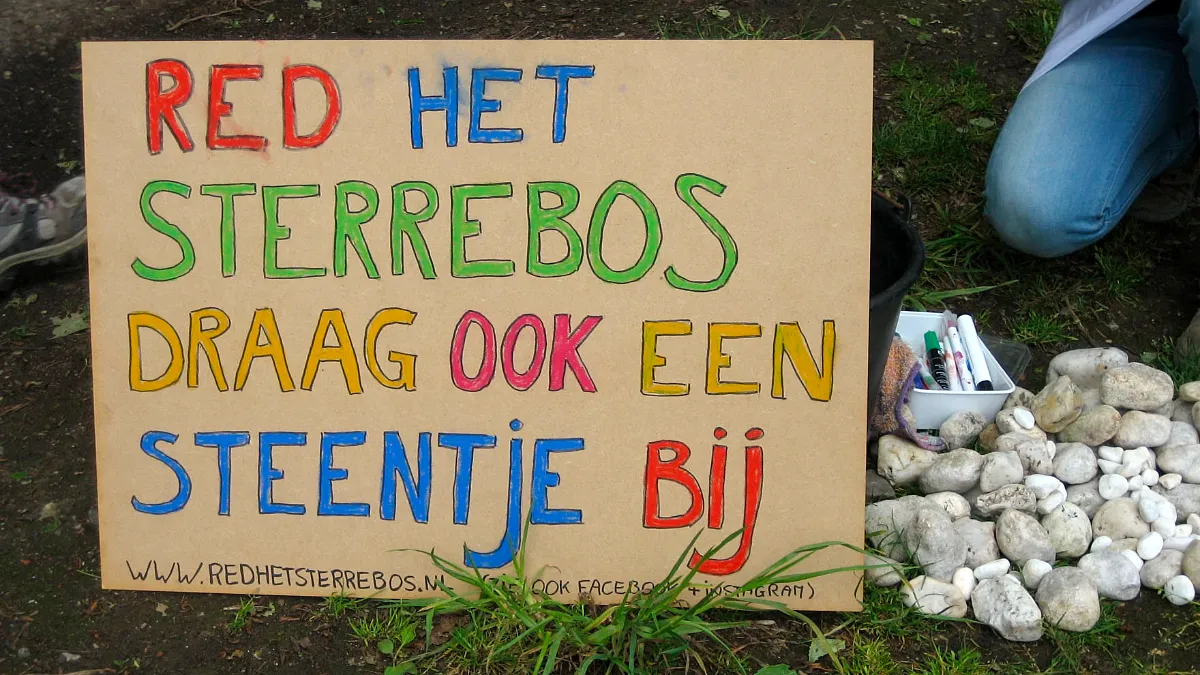 RED HET
STERREBOS
DRAAG OOK EEN
STEENTJE BIJ
WWW.REDHETSTERREBOS.NL (ZIE OOK FACEBOOK + INSTAGRAM)